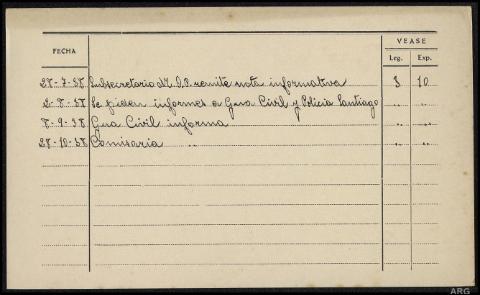 VEASE
FECHA Leg. Exp.
28-7-38 Subsecretario M. O.P. remite nota informativa 3 10
2-8-38 Se piden informes a Gua Civil y Policia Santiago " "
8-9-38 Gua Civil informa " "
28-10-38 Comisaria " " "
ARG